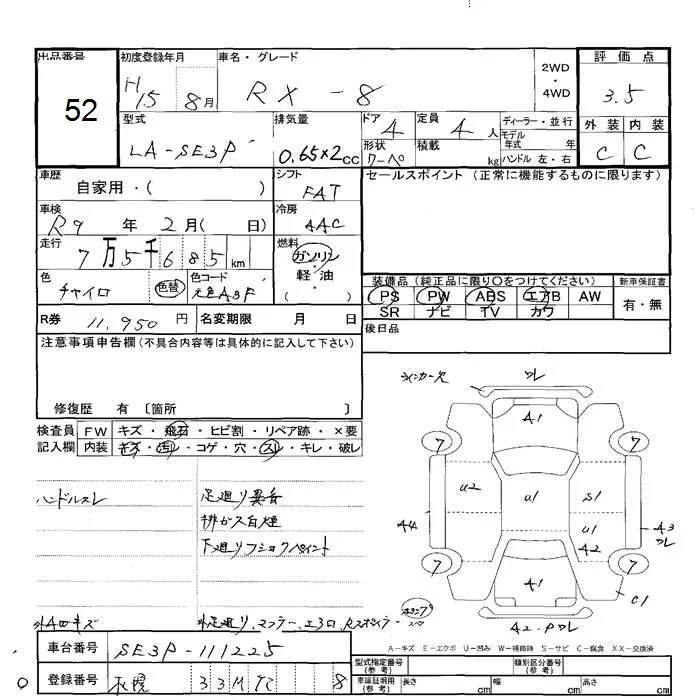 出品番号 初度登録年月 車名・グレード 2WD・4WD 評価点
52 H15 8月 RX-8 3.5
型式 排気量 ドア 定員 ディーラー・並行 外装 内装
LA-SE3P 0.65×2cc 4 4人 モデル年式 年 C C
形状 クーペ 積載 kg ハンドル 左・右
車歴 シフト セールスポイント (正常に機能するものに限ります)
自家用・( ) FAT
車検 冷房
R9年 2月( 日) AAC
走行 燃料
7万5千685km ガソリン 軽油 ( )
色 色替 色コード 装備品 (純正品に限り○をつけてください) 新車保証書
チャイロ 元色A3F PS PW ABS エアB AW 有・無
SR ナビ TV カワ
R券 11,950円 名変期限 月 日 後日品
注意事項申告欄(不具合内容等は具体的に記入して下さい)
修復歴 有 〔箇所 〕
検査員 FW キズ・飛石・ヒビ割・リペア跡・×要
記入欄 内装 キズ・汚レ・コゲ・穴・スレ・キレ・破レ
ハンドルスレ 足廻り異音
排ガス白煙
下廻りフショクペイント
ウィンカー欠 ワレ
A1
7 7
U2 U1 S1
A4 U1 A2 A3 ワレ
7 7
A1 C1
A2・Pワレ
外足廻り、マフラー、エアロ、Rスポイラー
A-キズ E-エクボ U-凹み W-補修跡 S-サビ C-腐食 XX-交換済
車台番号 SE3P-111225
型式指定番号(参考) 類別区分番号(参考)
登録番号 札幌 33 8
車庫証明用(参考) 長さ cm 幅 cm 高さ cm